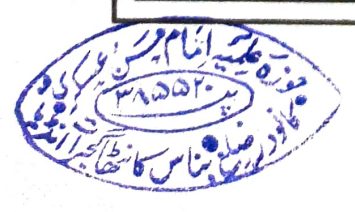 حوزہ علمیہ امام حسن عسکری
پن ۳۸۵۵۲۰
کانودر ضلع بناس کانٹھا گجرات انڈیا